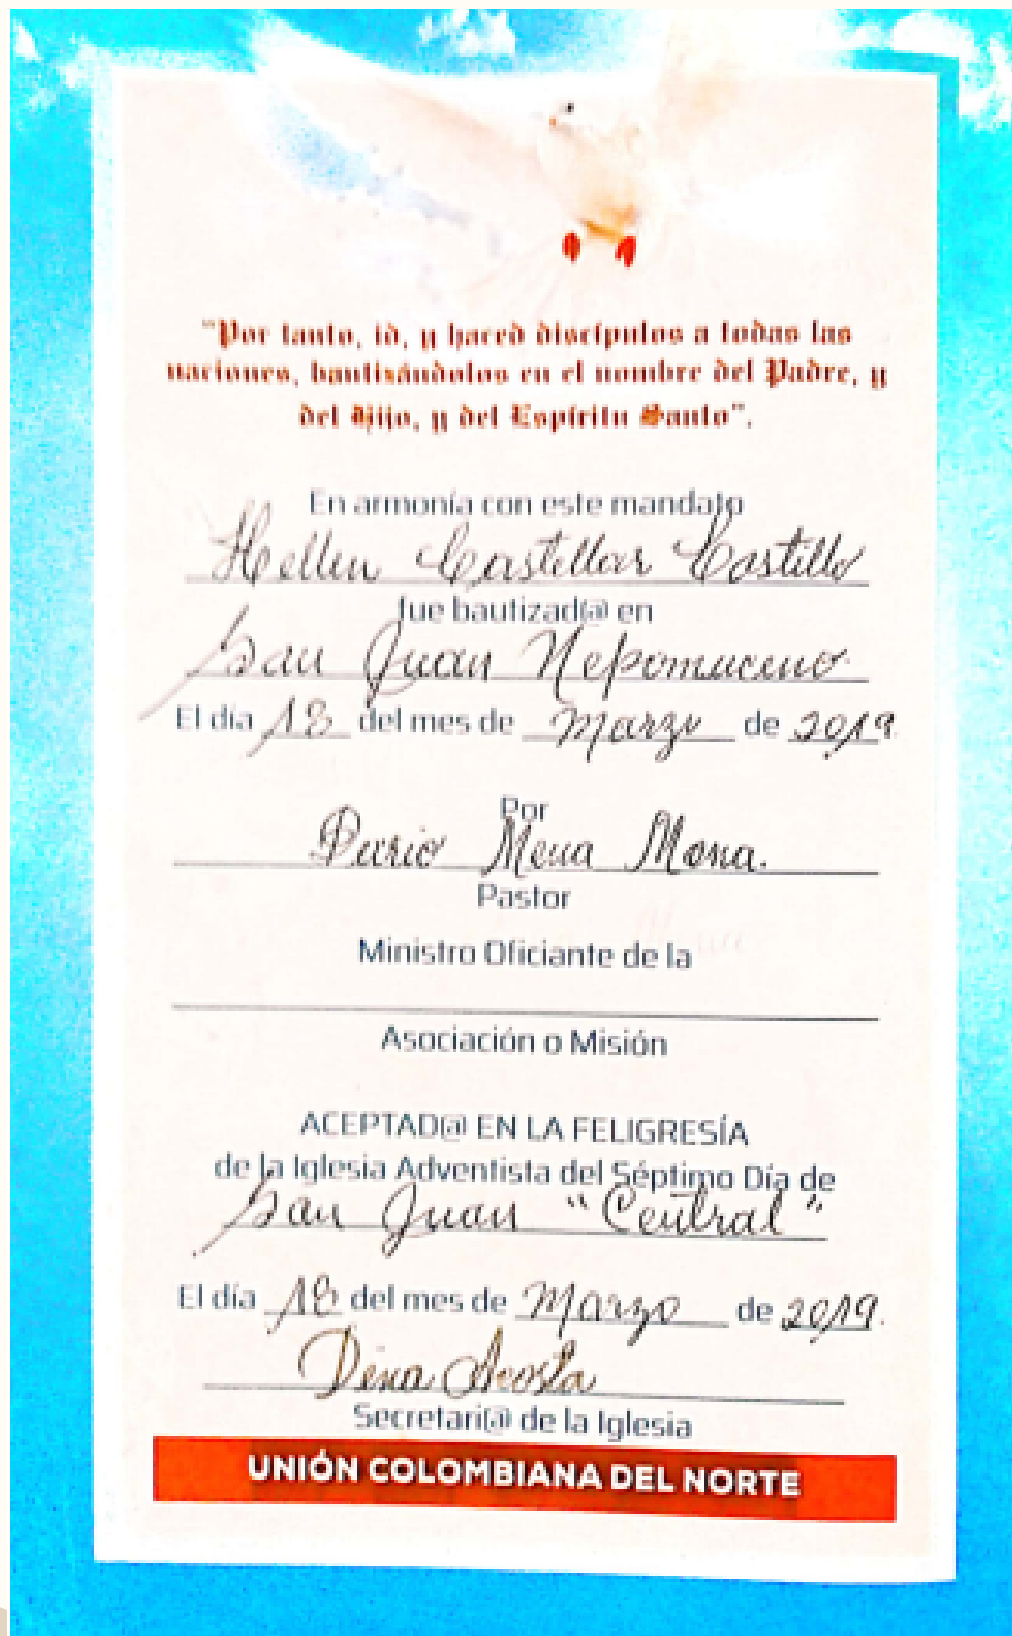 "Por tanto, id, y haced discípulos a todas las
naciones, bautizándolos en el nombre del Padre, y
del Hijo, y del Espíritu Santo".
En armonía con este mandato
Hellen Castellar Castillo
fue bautizad@ en
San Juan Nepomuceno
El día 18 del mes de Marzo de 2019.
Por
Dario Mena Mena.
Pastor
Ministro Oficiante de la
Asociación o Misión
ACEPTAD@ EN LA FELIGRESÍA
de la Iglesia Adventista del Séptimo Día de
San Juan "Central"
El día 18 del mes de Marzo de 2019.
Dena Acosta
Secretari@ de la Iglesia
UNIÓN COLOMBIANA DEL NORTE